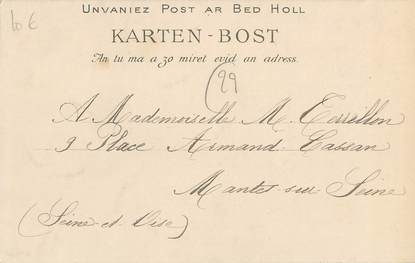 Unvaniez Post ar Bed Holl
10 €
KARTEN-BOST
An tu ma a zo miret evid an adress.
(29
A Mademoiselle M.
9 Place Armand-Cassan
Mantes sur Seine
(Seine-et-Oise)